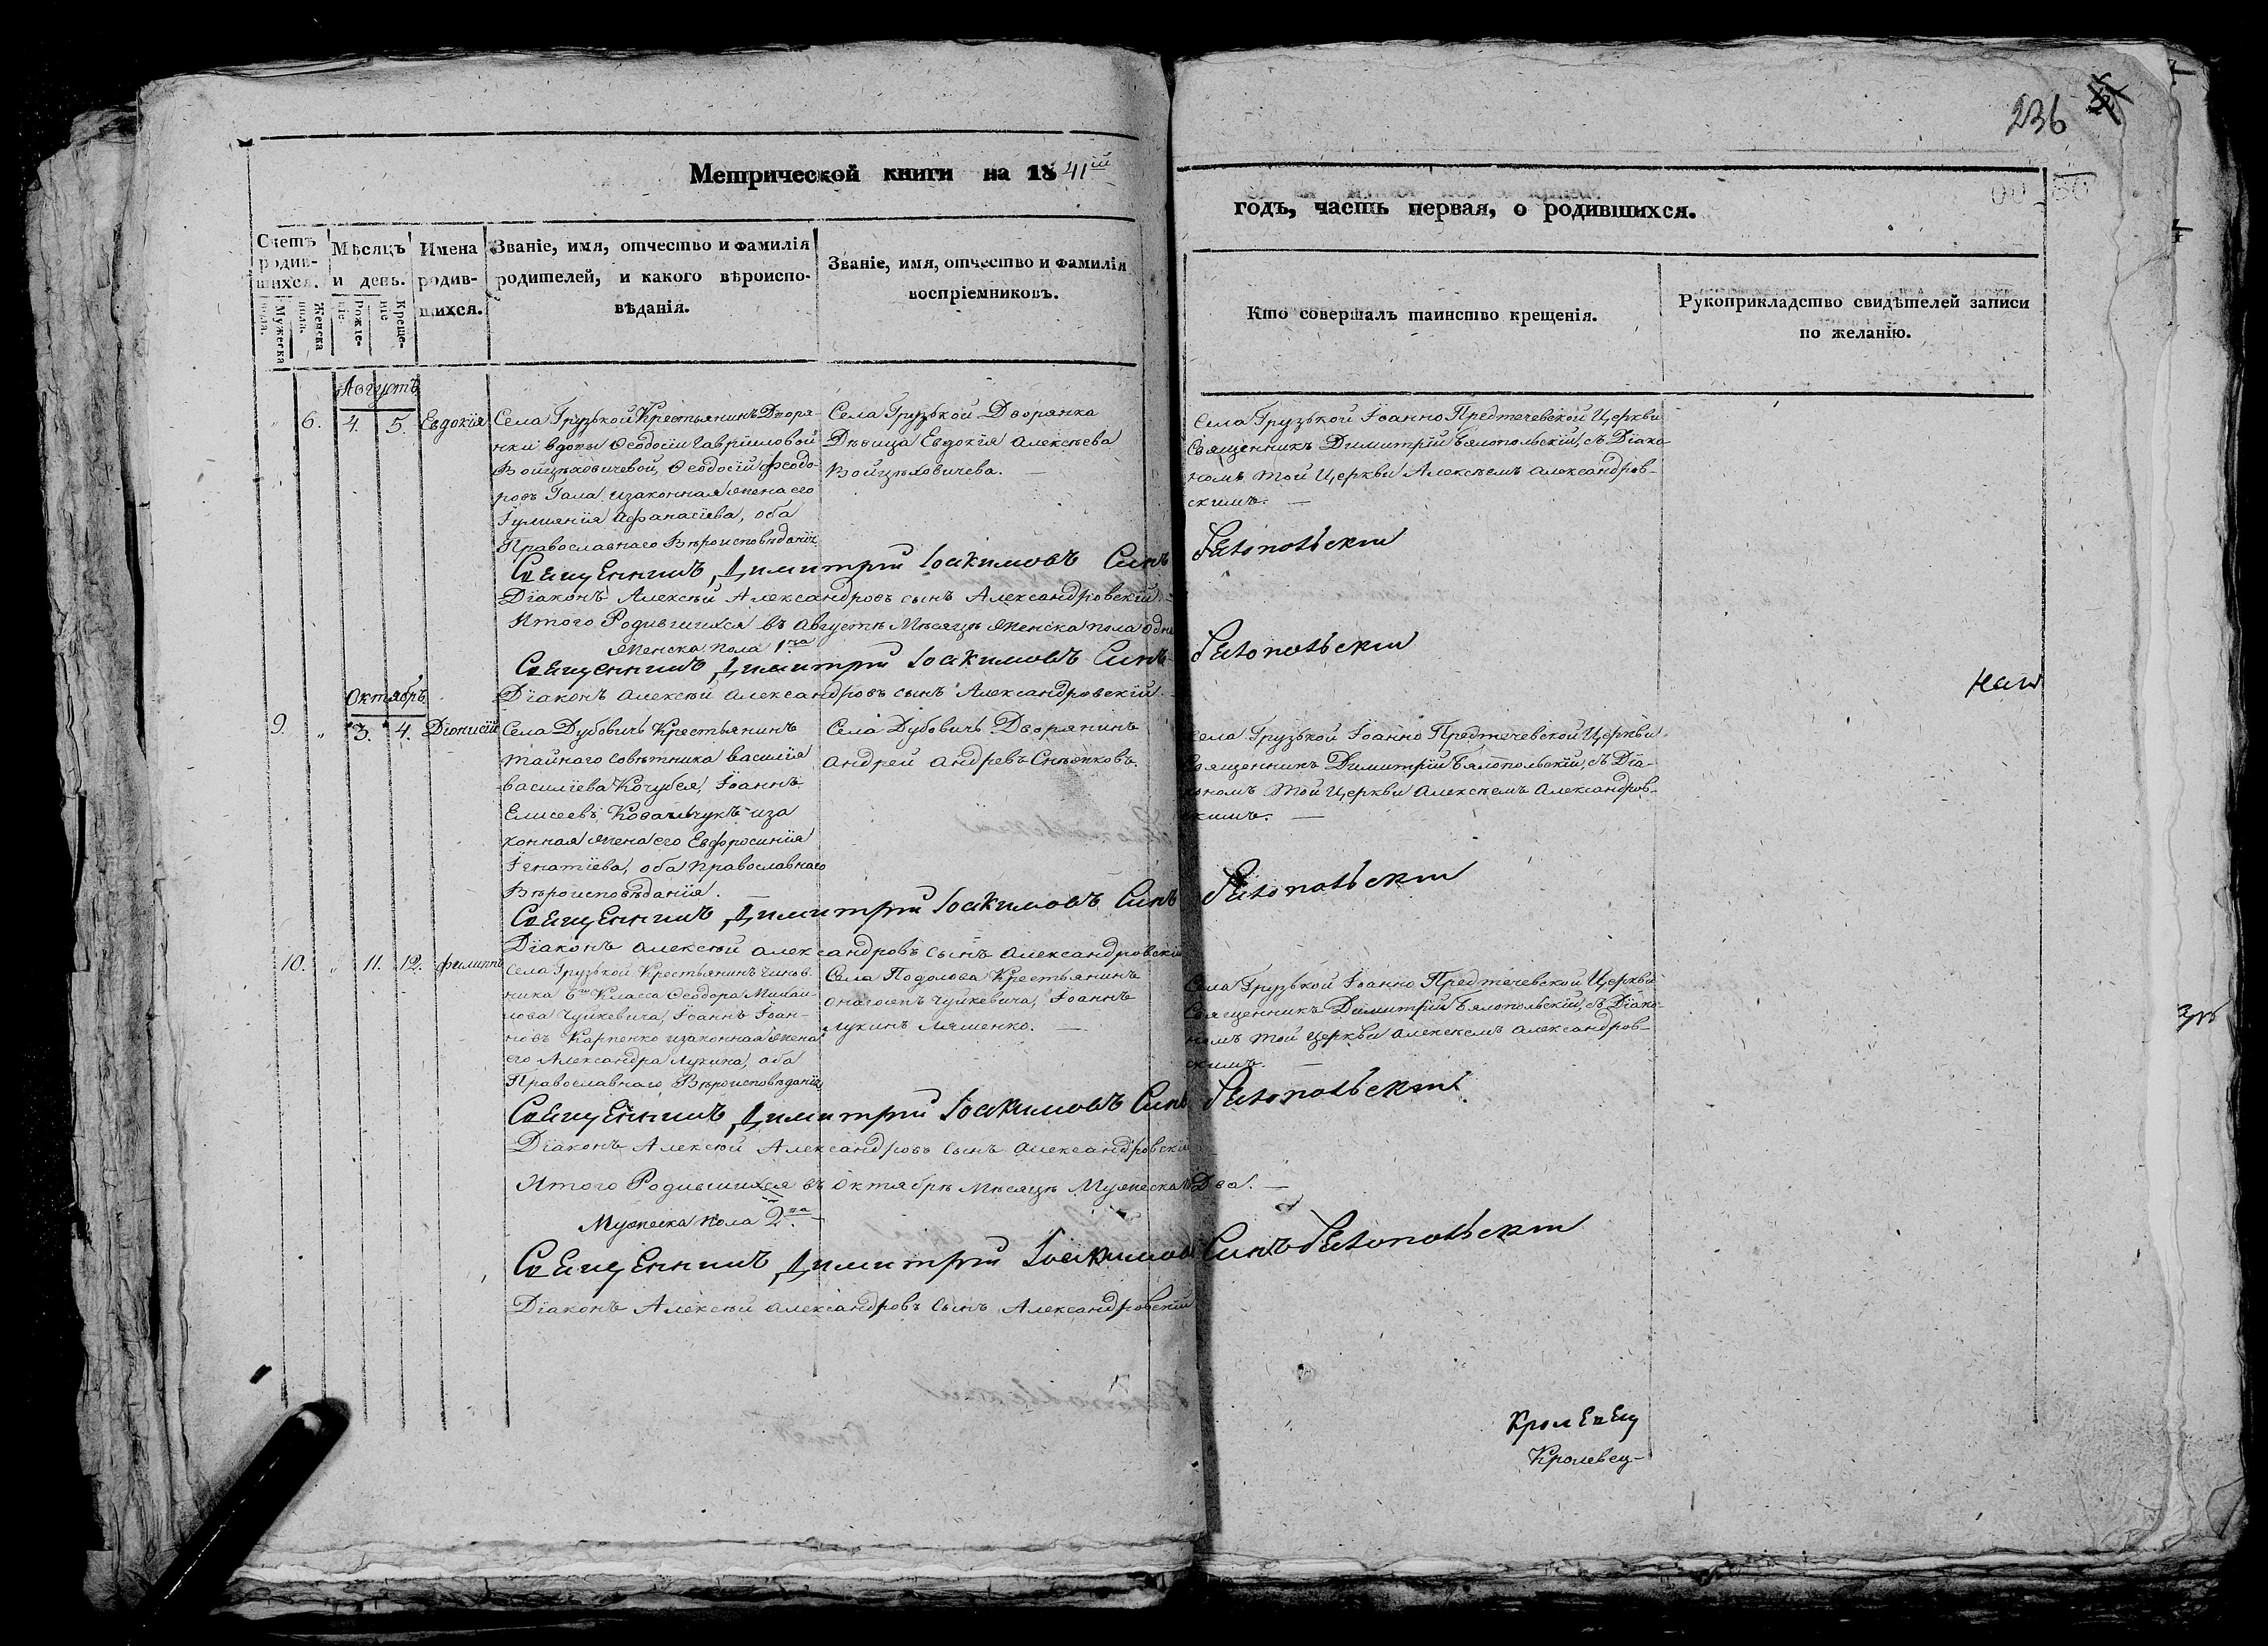 236
Метрической книги на 1841ій
годъ, часть первая, о родившихся.
Счетъ родив-шихся.
Мужеска пола.
Женска пола.
Мѣсяцъ и день.
Рожде-ніе.
Креще-ніе
Имена родив-шихся.
Званіе, имя, отчество и фамилія
родителей, и какого вѣроиспо-
вѣданія.
Званіе, имя, отчество и фамилія
воспріемниковъ.
Кто совершалъ таинство крещенія.
Рукоприкладство свидѣтелей записи
по желанію.
Августъ
„ 6. 4. 5. Евдокія
Села Грузской Крестьянинъ Дворя-
нки вдовы Ѳеодосіи Гавріиловой
Войцѣховичевой, Ѳеодосій Феодо-
ровъ Гала изаконная жена его
Іулианія Афанасіева, оба
Православнаго Вѣроисповѣданія
Села Грузской Дворянка
Дѣвица Евдокія Алексѣева
Войцѣховичева. —
Села Грузской Іоанно Предтечевской Церкви
Священникъ Димитрій Бялопольскій, съ Діако
номъ той Церкви Алексѣемъ Александров-
скимъ. —
Священникъ Димитрий Іоакимовъ Синъ Бялопольский
Діаконъ Алексѣй Александровъ сынъ Александровскій. —
Итого Родившихся въ Августѣ Мѣсяцѣ Женска пола Одна
Женска пола 1на
Священникъ Димитрий Іоакимовъ Синъ Бялопольский
Діаконъ Алексѣй Александровъ сынъ Александровскій.
Октябрь
9. „ 3. 4. Діонисій
Села Дубовичъ Крестьянинъ
тайнаго Совѣтника Василія
Василіева Кочубея, Іоаннъ
Елисеевъ Ковальчукъ иза
конная жена его Евфросинія
Игнатіева, оба Православнаго
Вѣроисповѣданія. —
Села Дубовичъ Дворянинъ
Андрей Андрѣевъ
Села Грузской Іоанно Предтечевской Церкви
Священникъ Димитрій Бялопольскій, съ Діа-
кономъ той Церкви Алексѣемъ Александров-
скимъ. —
Священникъ Димитрий Іоакимовъ Синъ Бялопольский
Діаконъ Алексѣй Александровъ Сынъ Александровскій
10. „ 11. 12. Филиппъ
Села Грузской Крестьянинъ Чинов
ника 6го Класса Ѳеодора Михаи-
лова Чуйкевича, Іоаннъ Іоан-
новъ Карпенко изаконная жена
его Александра Лукина, оба
Православнаго Вѣроисповѣданія
Села Подолова Крестьянинъ
онагожъ Чуйкевича, Іоаннъ
Лукинъ Ляшенко. —
Села Грузской Іоанно Предтечевской Церкви
Священникъ Димитрій Бялопольскій, съ Діако-
номъ той Церкви Алексѣемъ Александров-
скимъ. —
Священникъ Димитрий Іоакимовъ Синъ Бялопольский
Діаконъ Алексѣй Александровъ Сынъ Александровскій
Итого Родившихся въ Октябрѣ Мѣсяцѣ Мужеска Два. —
Мужеска пола 2ва
Священникъ Димитрий Іоакимовъ Синъ Бялопольский
Діаконъ Алексѣй Александровъ Сынъ Александровскій
Кролевец
Кролевец-